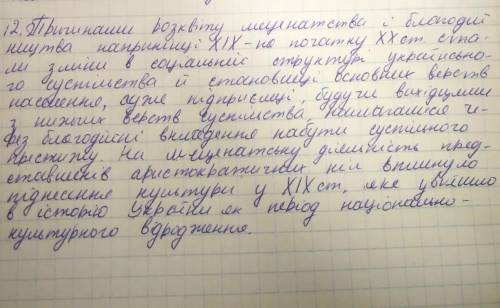 12. Причинами розквіту меценатства і благодій
ництва наприкінці XIX - по початку XX ст. ста-
ли зміни в соціальній структурі українсько-
го суспільства й становищі основних верств
населення, адже підприємці, будучи вихідцями
з нижчих верств суспільства, намагалися че-
рез благодійні вкладення набути суспільного
престижу. На меценатську діяльність пред-
ставників аристократичних кіл вплинуло
піднесення культури у XIX ст, яке увійшло
в історію України як період національно-
культурного відродження.